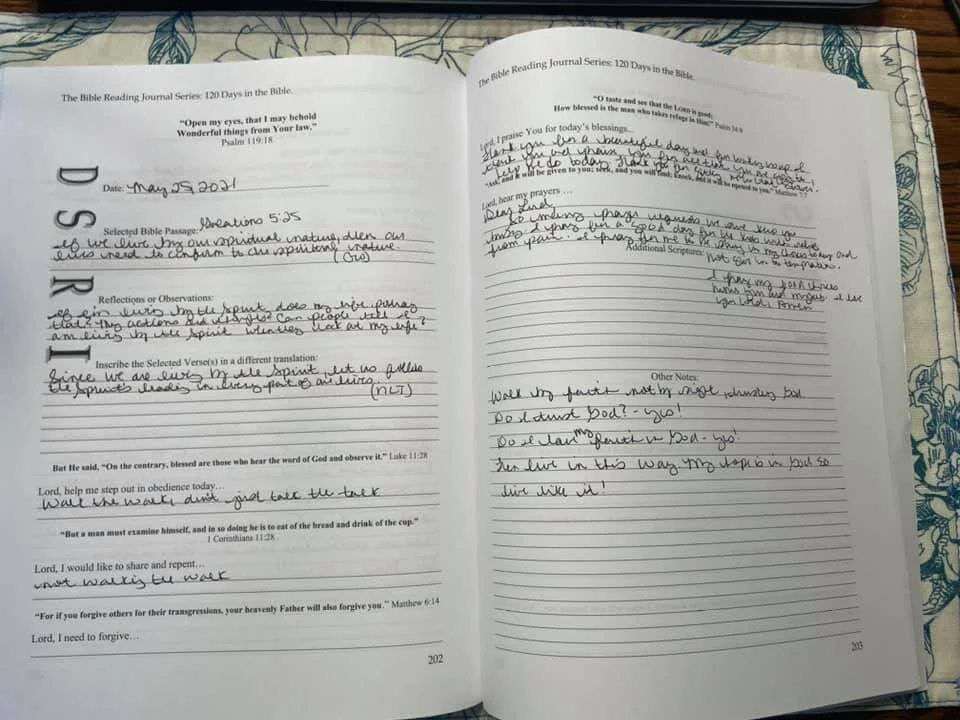 The Bible Reading Journal Series: 120 Days in the Bible.
"Open my eyes, that I may behold
Wonderful things from Your law."
Psalm 119:18
D
S
R
I
Date: May 25, 2021
Selected Bible Passage: Galations 5:25
If we live by our spiritual nature, then our
lives need to conform to our spiritual nature.
(GW)
Reflections or Observations:
If I'm living by the Spirit does my life portray
that? My actions and
am living by the Spirit when they look at my life?
Inscribe the Selected Verse(s) in a different translation:
Since we are living by the Spirit, let us follow
the Spirit's leading in every part of our lives.
(NLT)
But He said, "On the contrary, blessed are those who hear the word of God and observe it." Luke 11:28
Lord, help me step out in obedience today…
Walk the walk, don't just talk the talk
"But a man must examine himself, and in so doing he is to eat of the bread and drink of the cup."
1 Corinthians 11:28
Lord, I would like to share and repent…
not walking the walk
"For if you forgive others for their transgressions, your heavenly Father will also forgive you." Matthew 6:14
Lord, I need to forgive…
202
The Bible Reading Journal Series: 120 Days in the Bible.
"O taste and see that the LORD is good;
How blessed is the man who takes refuge in Him!" Psalm 34:8
Lord, I praise You for today's blessings...
Thank you for a beautiful day and for waking me up. I
thank you and praise you for all that you are going to
help me do today. Thank you for
"Ask, and it will be given to you; seek, and you will find; knock, and it will be opened to you." Matthew 7:7
Lord, hear my prayers …
Dear Lord
So many prayer requests we have and you
I pray for a good day for
from pain. I pray for me to be strong in my choices today and
Additional Scriptures: not give in to temptation.
I pray
I love
you Lord. Amen
Other Notes:
Walk by faith not by sight, trusting God
Do I trust God? - yes!
Do I have my faith in God - yes!
Then live in this way. My hope is in God so
live like it!
203